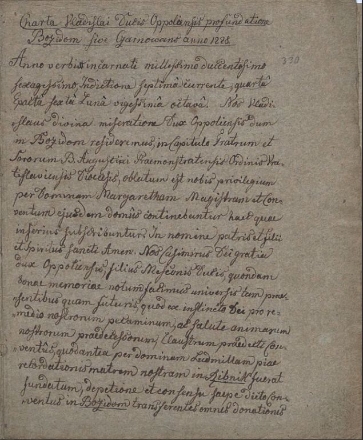 Charta Vladislai Ducis Oppolensis pro fundatione
Bozidom sive Garnowano anno 1228
330
Anno verbi incarnati millesimo ducentesimo
sexagesimo, Indictione septima currente, quarta
Epacta sexta Luna vigesima octava. Nos Vladi-
slaus divina miseratione Dux Oppoliensis dum
in Bozidom resideremus, in Capitulo Fratrum et
Sororum B. Augustini Praemonstratensis Ordinis Vra-
tislaviensis Diocesis, oblatum est nobis privilegium
per Dominam Margaretham Magistram et Con-
ventum ejusdem domus continebantur haec quae
inferius subscribuntur. In nomine patris et filii
et spiritus sancti Amen. Nos Casimirus Dei gratia
dux Oppoliensis, filius Mesconis Ducis, quondam
bonae memoriae notum facimus universis tam prae-
sentibus quam futuris, quod ex instinctu Dei pro re-
medio nostrorum peccaminum, ac salute animarum
nostrorum praedecessorum, Claustrum praedicti Con-
ventus, quod antea per dominam Ludmillam piae
recordationis matrem nostram in Ribnik fuerat
fundatum, de petitione et consensu saepe dicti Con-
ventus in Bozidom transferentes omnes donationes